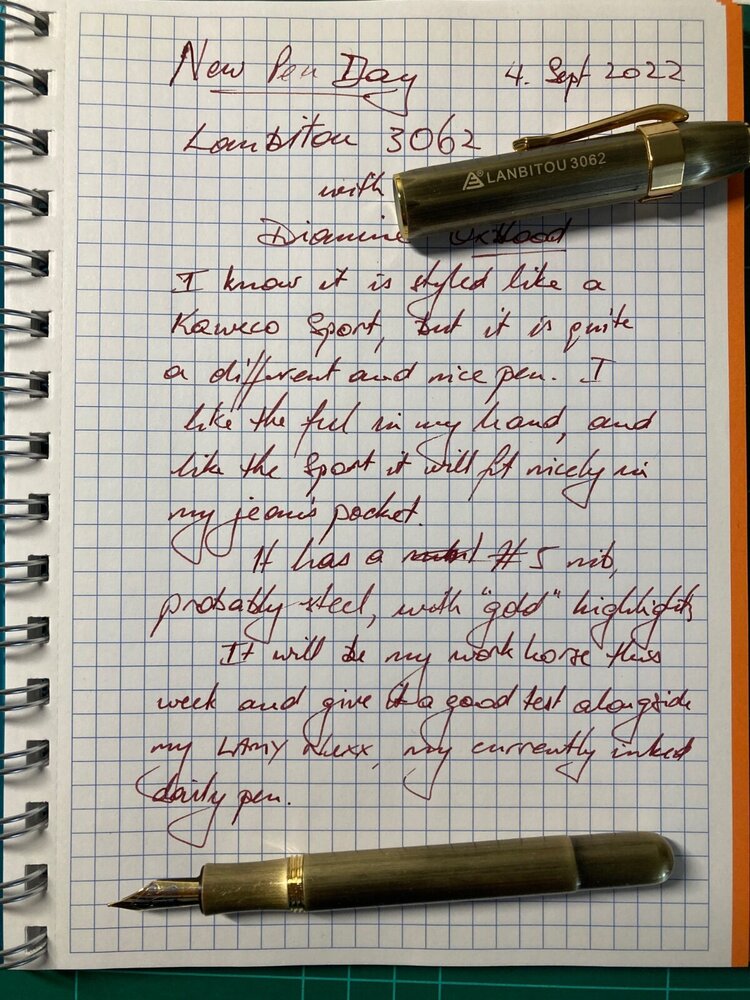 New Pen Day 4. Sept 2022
Lanbitou 3062
LANBITOU 3062
with
Diamine Oxblood
I know it is styled like a
Kaweco Sport, but it is quite
a different and nice pen. I
like the feel in my hand, and
like the Sport it will fit nicely in
my jeans pocket.
It has a #5 nib,
probably steel, with "gold" highlights
It will be my workhorse this
week and give it a good test alongside
my LAMY Nexx, my currently inked
daily pen.